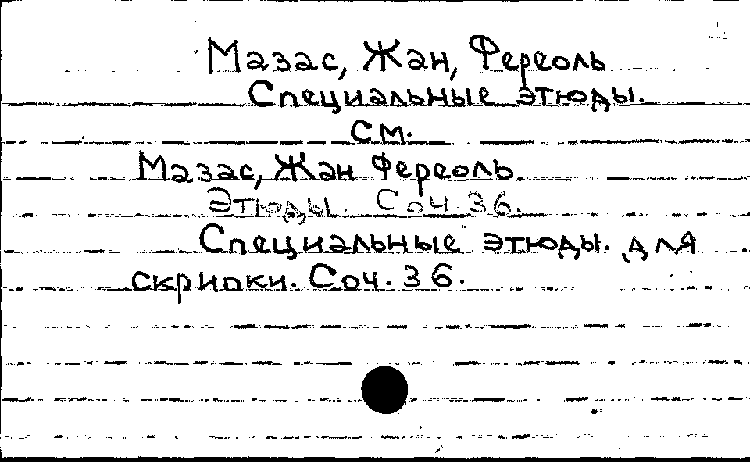 Мазас, Жан, Фереоль
Специальные этюды.
см.
Мазас, Жан Фереоль.
Этюды. Соч. 36.
Специальные этюды. для
скрипки. Соч. 36.